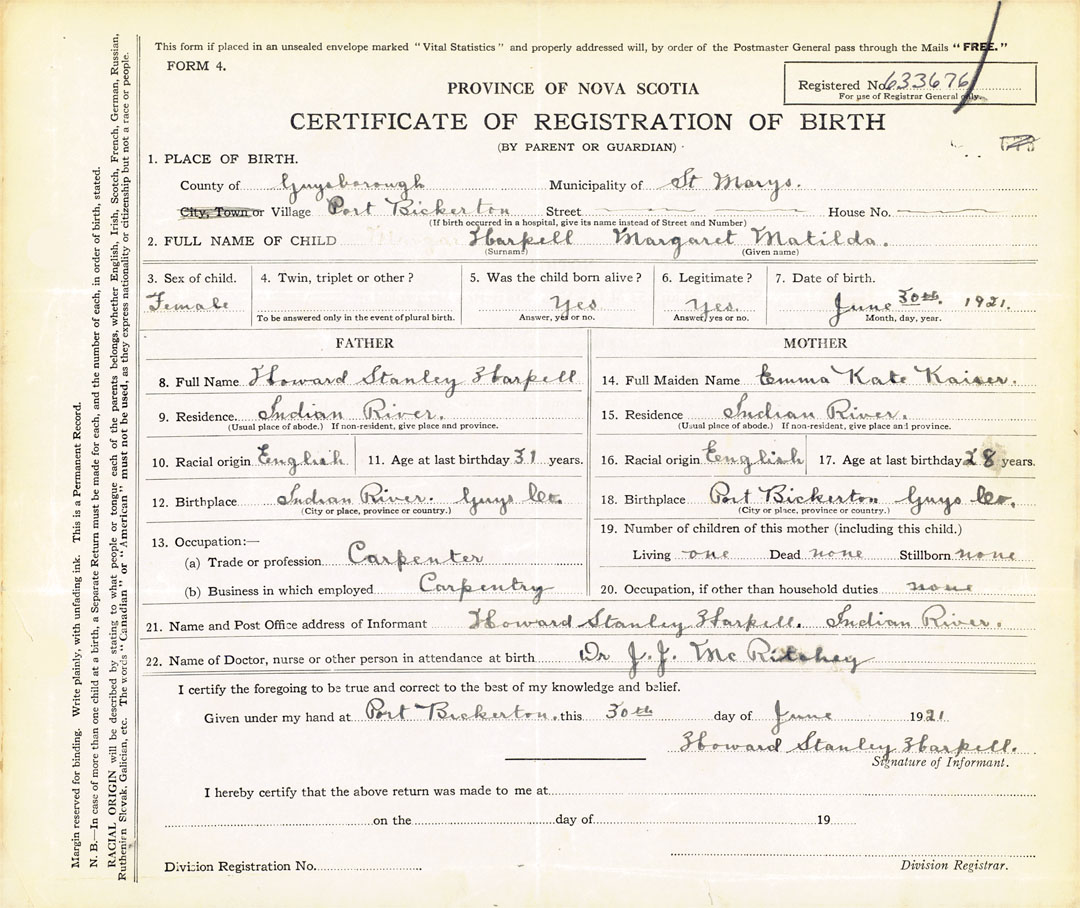 This form if placed in an unsealed envelope marked "Vital Statistics" and properly addressed will, by order of the Postmaster General pass through the Mails "FREE."
FORM 4.
Registered No. 633676
For use of Registrar General only.
PROVINCE OF NOVA SCOTIA
CERTIFICATE OF REGISTRATION OF BIRTH
(BY PARENT OR GUARDIAN)
1. PLACE OF BIRTH.
County of Guysborough Municipality of St Marys.
City, Town or Village Port Bickerton Street House No.
(If birth occurred in a hospital, give its name instead of Street and Number)
2. FULL NAME OF CHILD Harpell Margaret Matilda.
(Surname) (Given name)
3. Sex of child. 4. Twin, triplet or other? 5. Was the child born alive? 6. Legitimate? 7. Date of birth.
Female Yes Yes. June 30th. 1921.
To be answered only in the event of plural birth. Answer, yes or no. Answer, yes or no. Month, day, year.
FATHER MOTHER
8. Full Name Howard Stanley Harpell 14. Full Maiden Name Emma Kate Kaiser.
9. Residence. Indian River. 15. Residence Indian River.
(Usual place of abode.) If non-resident, give place and province. (Usual place of abode.) If non-resident, give place and province.
10. Racial origin English 11. Age at last birthday 31 years. 16. Racial origin English 17. Age at last birthday 28 years.
12. Birthplace Indian River. Guys Co. 18. Birthplace Port Bickerton Guys Co.
(City or place, province or country.) (City or place, province or country.)
13. Occupation:— 19. Number of children of this mother (including this child.)
(a) Trade or profession Carpenter Living one Dead none Stillborn none
(b) Business in which employed Carpentry 20. Occupation, if other than household duties none
21. Name and Post Office address of Informant Howard Stanley Harpell. Indian River.
22. Name of Doctor, nurse or other person in attendance at birth Dr J. J. Mc Ritchey
I certify the foregoing to be true and correct to the best of my knowledge and belief.
Given under my hand at Port Bickerton. this 30th day of June 1921
Howard Stanley Harpell.
Signature of Informant.
I hereby certify that the above return was made to me at
on the day of 19
Division Registration No. Division Registrar.
Margin reserved for binding. Write plainly, with unfading ink. This is a Permanent Record.
N. B.—In case of more than one child at a birth, a Separate Return must be made for each, and the number of each, in order of birth, stated.
RACIAL ORIGIN will be described by stating to what people or tongue each of the parents belongs, whether English, Irish, Scotch, French, German, Russian,
Ruthenian Slovak, Galician, etc. The words "Canadian" or "American" must not be used, as they express nationality or citizenship but not a race or people.